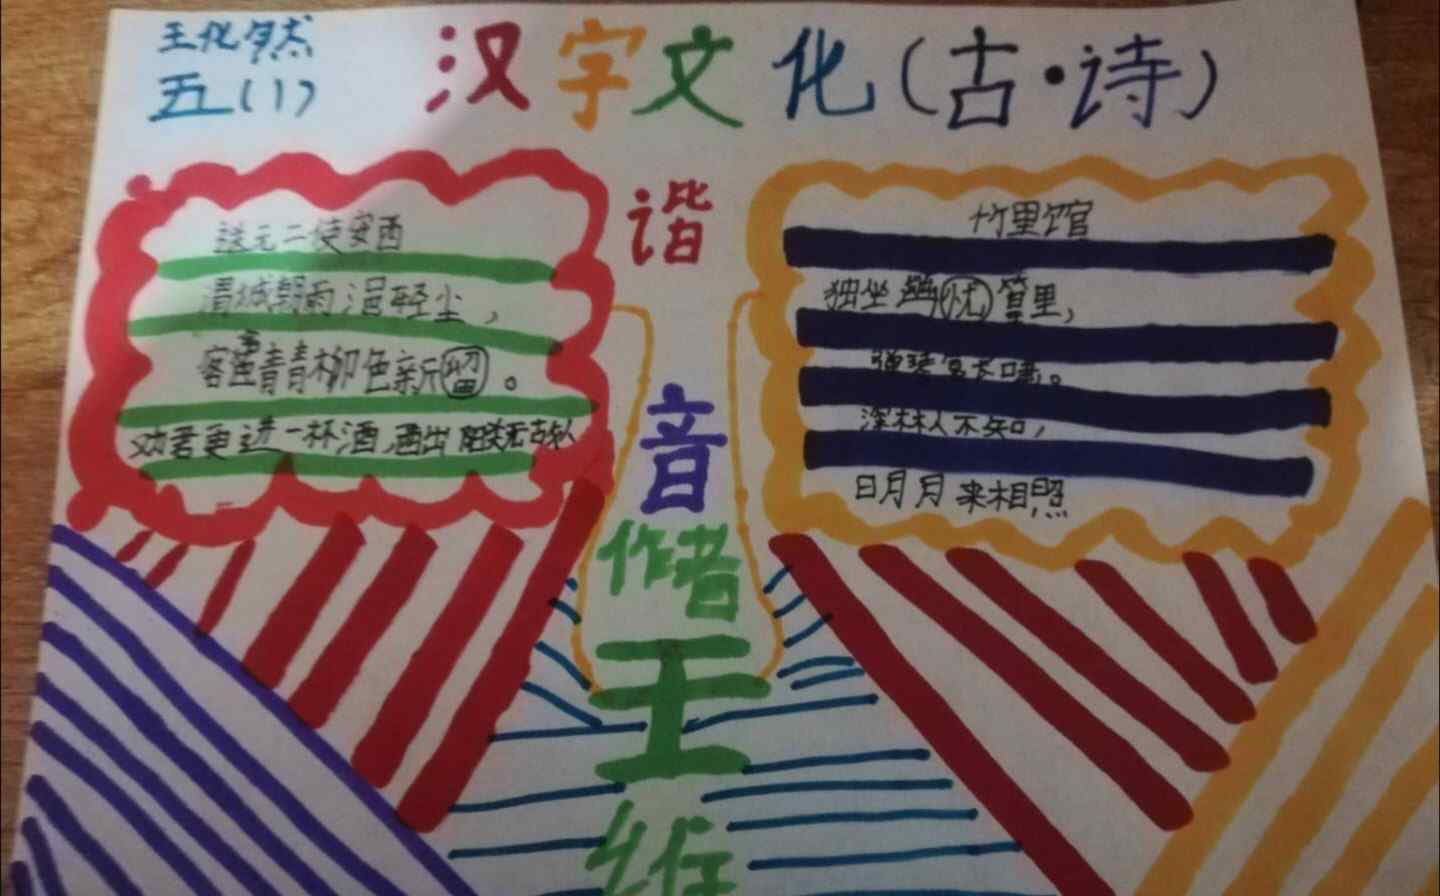 王化然
五(1)
汉字文化(古·诗)
送元二使安西
渭城朝雨浥轻尘，
客舍青青柳色新(留)。
劝君更进一杯酒,西出阳关无古人
谐
音
作者
王
维
竹里馆
独坐幽(忧)篁里，
弹琴复长啸。
深林人不知,
日月月来相照